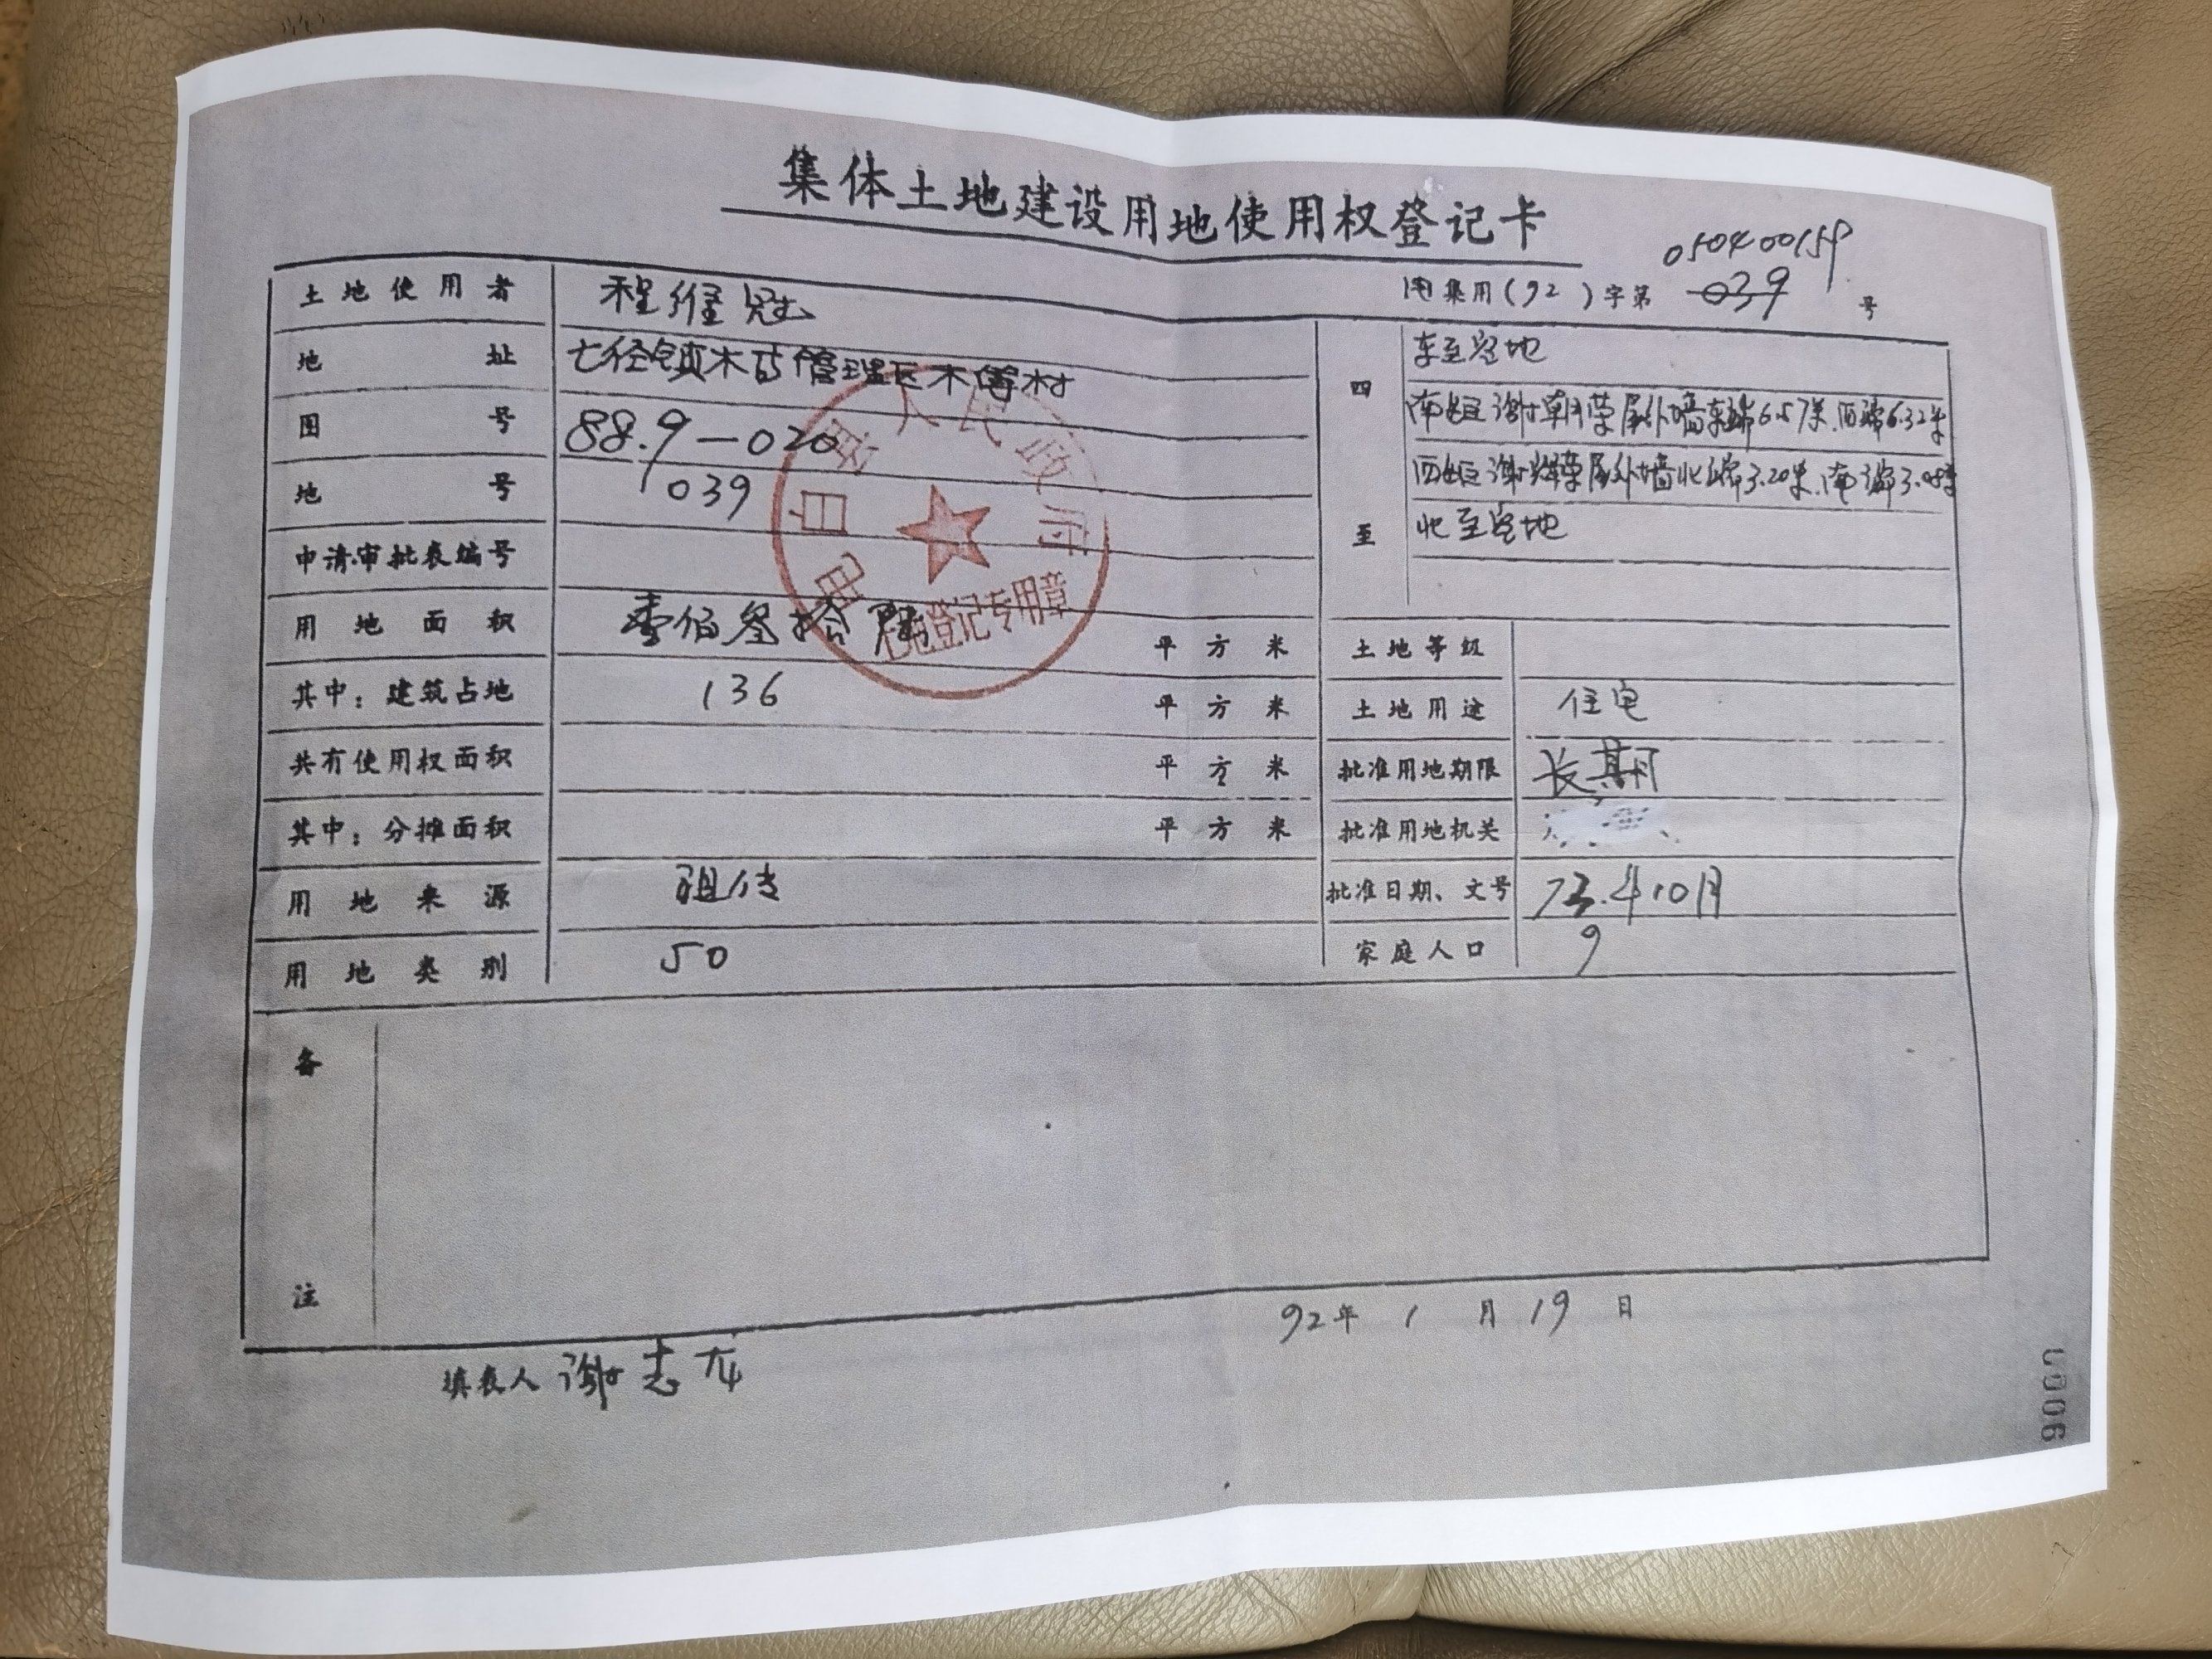 集体土地建设用地使用权登记卡
050400159
电集用(92)字第 039 号
土地使用者 程维冠
地址 七迳镇木苛管理区木等村
图号 88.9-020
地号 039
申请审批表编号
用地面积 壹佰叁拾陆 平方米
其中：建筑占地 136 平方米
共有使用权面积 平方米
其中：分摊面积 平方米
用地来源 祖传
用地类别 50
四至
东至空地
南距谢朝荣屋外墙东端6.57米.西端6.32米
西距谢辉荣屋外墙北端3.20米.南端3.08米
北至空地
土地等级
土地用途 住宅
批准用地期限 长期
批准用地机关
批准日期、文号 73.年10月
家庭人口 9
电白县人民政府
土地登记专用章
备注
92年 1 月 19 日
填表人 谢志